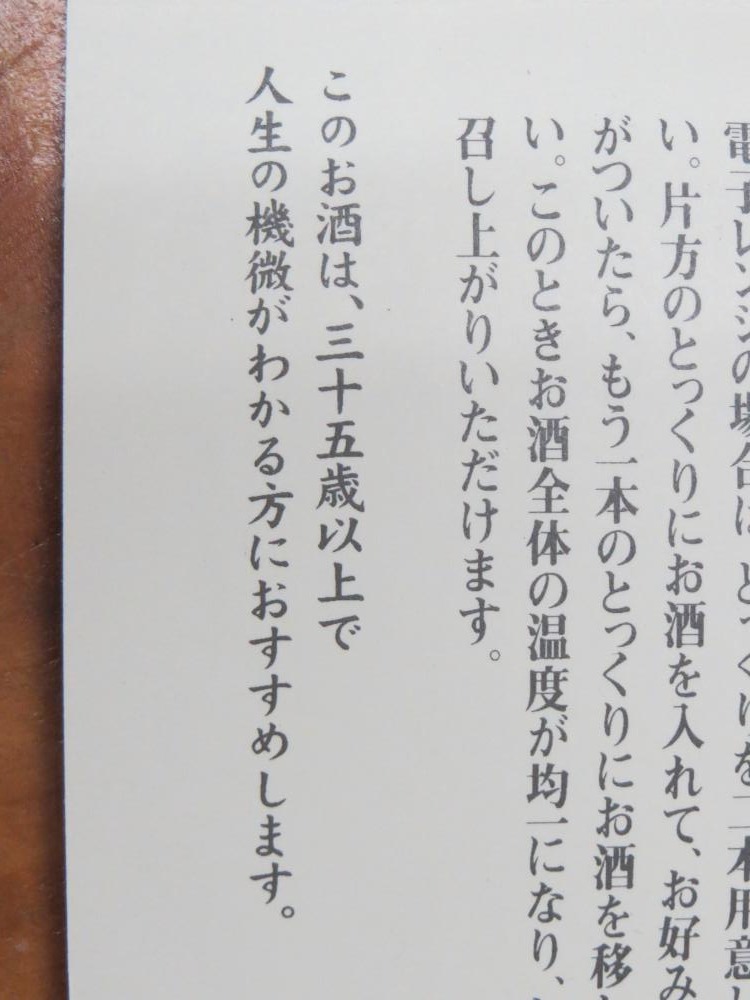 電子レンジの場合は、とっくりを二本用意し
い。片方のとっくりにお酒を入れて、お好み
がついたら、もう一本のとっくりにお酒を移し
い。このときお酒全体の温度が均一になり、
召し上がりいただけます。
このお酒は、三十五歳以上で
人生の機微がわかる方におすすめします。